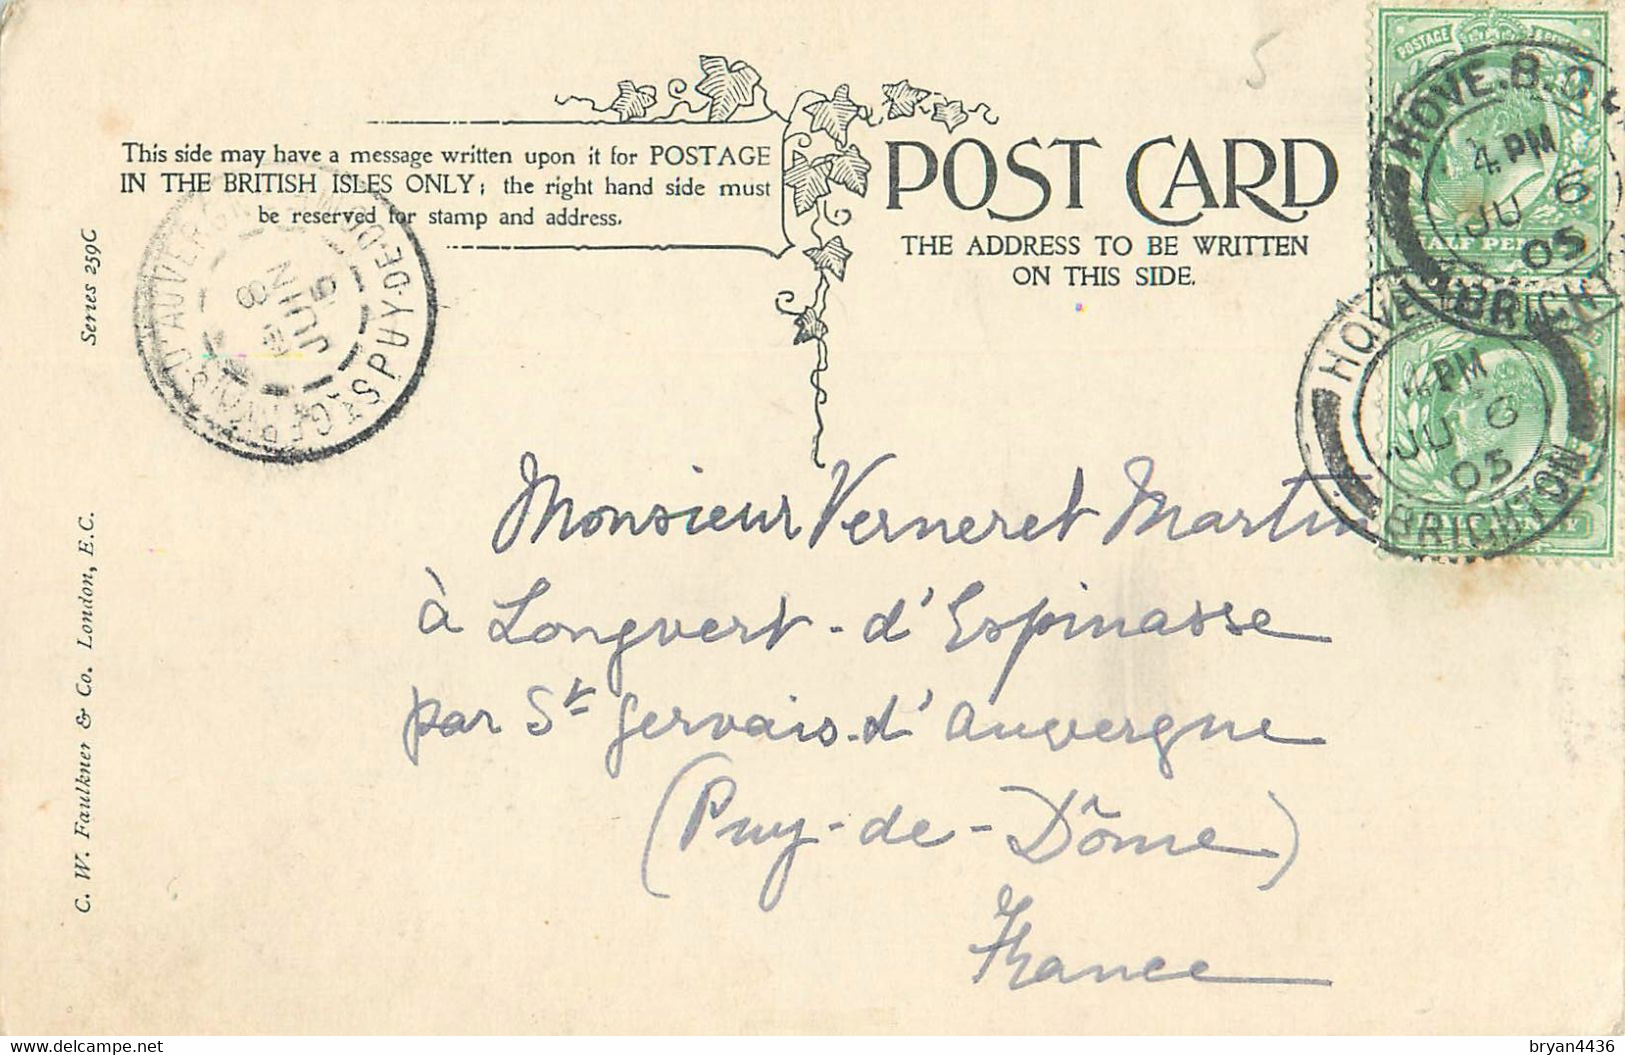 This side may have a message written upon it for POSTAGE
IN THE BRITISH ISLES ONLY; the right hand side must
be reserved for stamp and address.
POST CARD
THE ADDRESS TO BE WRITTEN
ON THIS SIDE.
5
POSTAGE
HOVE.B.O
4 PM
JU 6
05
BRIGHTON
HOVE
PM
JU 6
05
BRIGHTON
PUY-DE-DOME
8
JUIN
Series 259C
C. W. Faulkner & Co. London, E.C.
Monsieur Verneret Martin
à Longvert-d'Espinasse
par St Gervais-d'Auvergne
(Puy-de-Dôme)
France
bryan4436